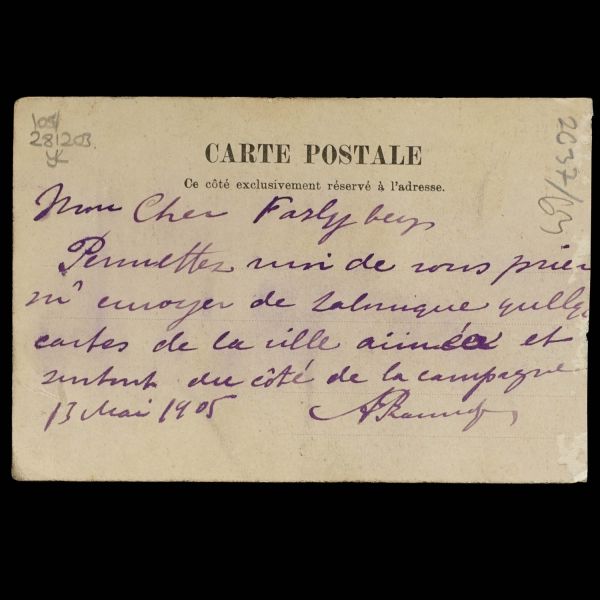 109/
281203
CARTE POSTALE
Ce côté exclusivement réservé à l'adresse.
2037/69
Mon Cher Fazly bey
Permettez moi de vous prier
m'envoyer de Salonique quelq
cartes de la ville aimée et
surtout du côté de la campagne
13 Mai 1905